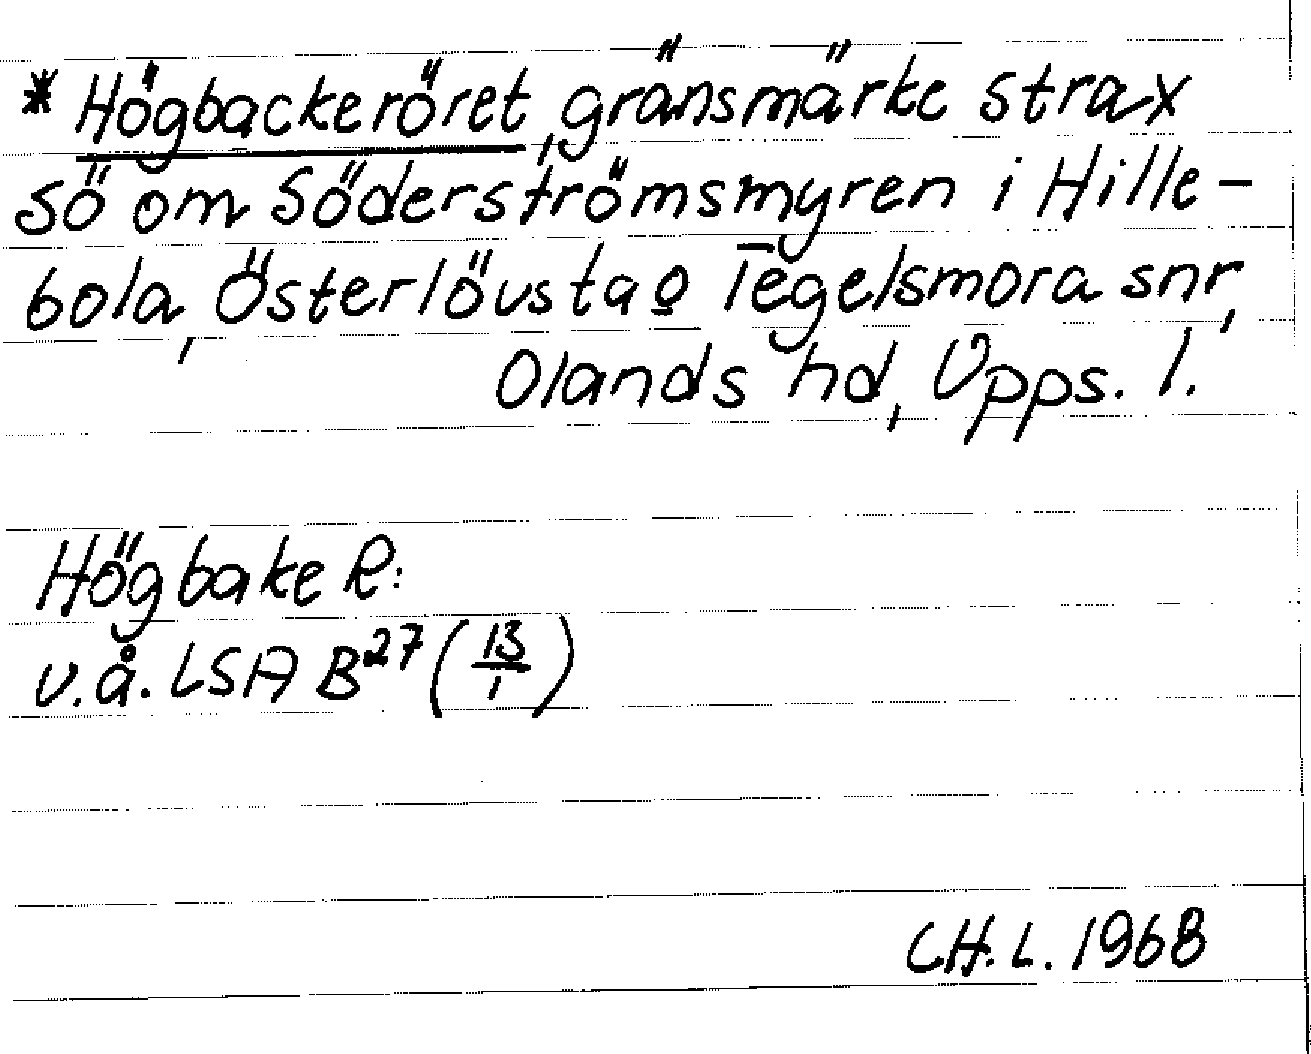 * Högbackeröret, gränsmärke strax
sö om Söderströmsmyren i Hille-
bola, Österlövsta o Tegelsmora snr,
Olands hd, Upps. l.
Högbake R:
v.å. LSA B27 (13/1)
CH. L. 1968